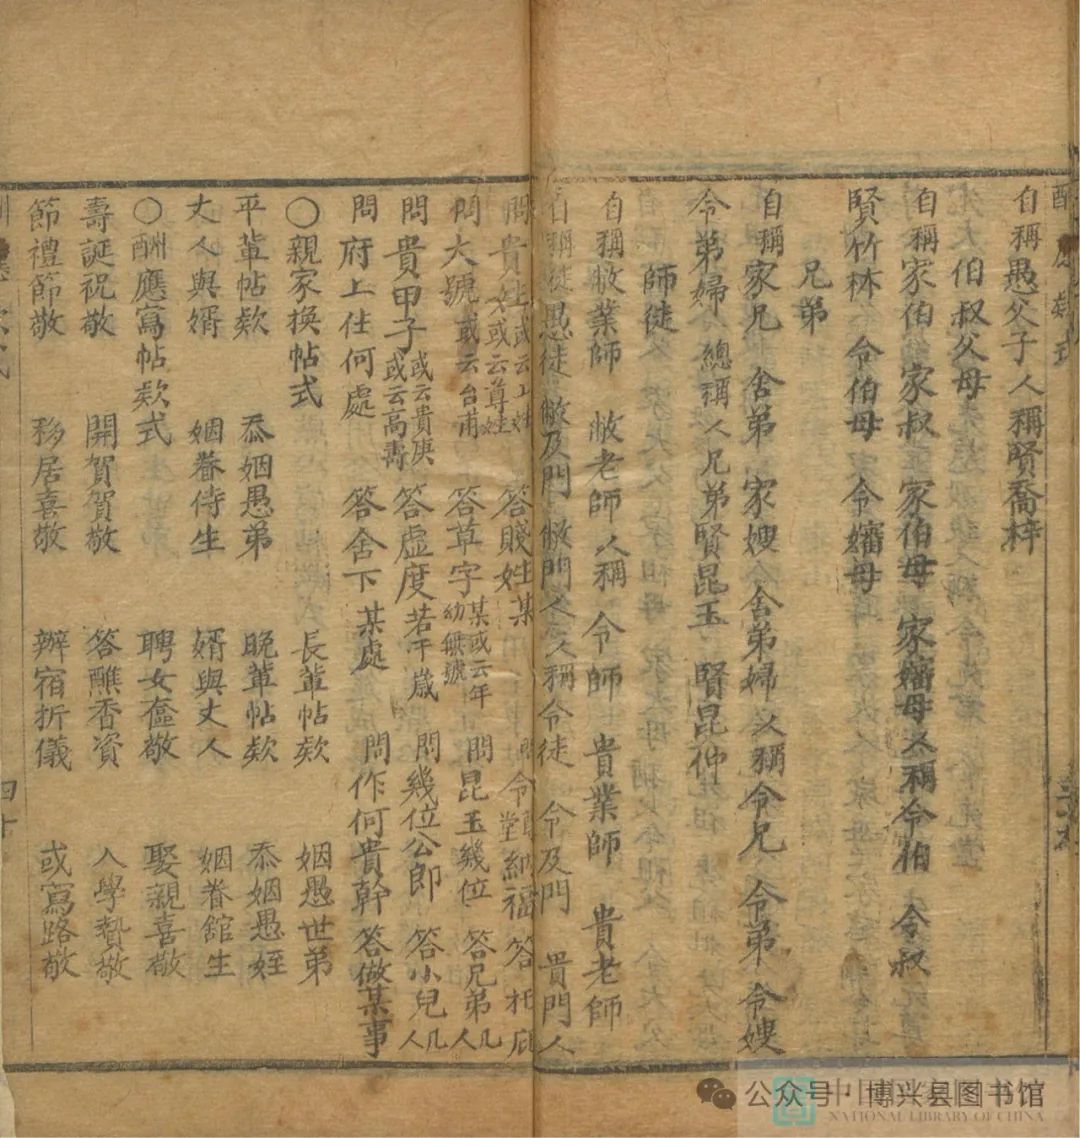 自稱愚父子 人稱賢喬梓
伯叔父母
自稱家伯 家叔 家伯母 家嬸母 人稱令伯 令叔
賢竹林 令伯母 令嬸母
兄弟
自稱家兄 舍弟 家嫂 舍弟婦 人稱令兄 令弟 令嫂
令弟婦 總稱人兄弟賢昆玉 賢昆仲
師徒
自稱敝業師 敝老師 人稱令師 貴業師 貴老師
自稱徒愚徒 敝及門 敝門人 人稱令徒 令及門 貴門人
問貴姓 或云上姓 或云尊姓 答賤姓某 問令堂納福 答托庇
問大號 或云台甫 答草字 某或云年幼無號 問昆玉幾位 答兄弟几人
問貴甲子 或云貴庚 或云高壽 答虛度若干歲 問幾位公郎 答小兒几人
問府上住何處 答舍下某處 問作何貴幹 答做某事
〇親家換帖式 長輩帖欵 姻愚世弟
平輩帖欵 忝姻愚弟 晚輩帖欵 忝姻愚姪
丈人與婿 姻眷侍生 婿與丈人 姻眷舘生
〇酬應寫帖欵式 聘女奩敬 娶親喜敬
壽誕祝敬 開賀賀敬 答醮香資 入學贄敬
節禮節敬 移居喜敬 辦宿折儀 或寫路敬
四十
公众号·博兴县图书馆
NATIONAL LIBRARY OF CHINA